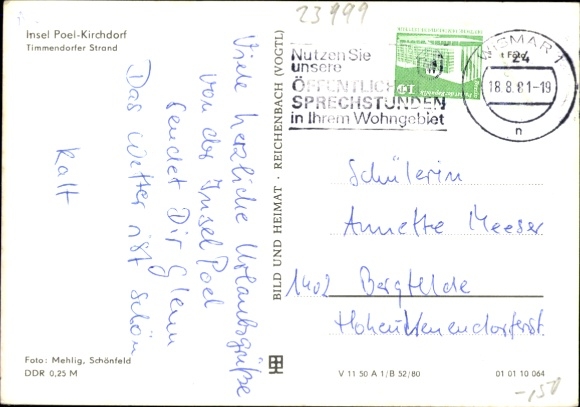 23999
Insel Poel-Kirchdorf
Timmendorfer Strand
Viele herzliche Urlaubsgrüße
von der Insel Poel
sendet Dir Glenn
Das Wetter ist schön
kalt
BILD UND HEIMAT · REICHENBACH (VOGTL)
Nutzen Sie
unsere
ÖFFENTLICHEN
SPRECHSTUNDEN
in Ihrem Wohngebiet
WISMAR 1
24
18.8.81-19
n
10
Schülerin
Annette Meeser
1402 Bergfelde
Hohen
Foto: Mehlig, Schönfeld
DDR 0,25 M
V 11 50 A 1/B 52/80
01 01 10 064
-150